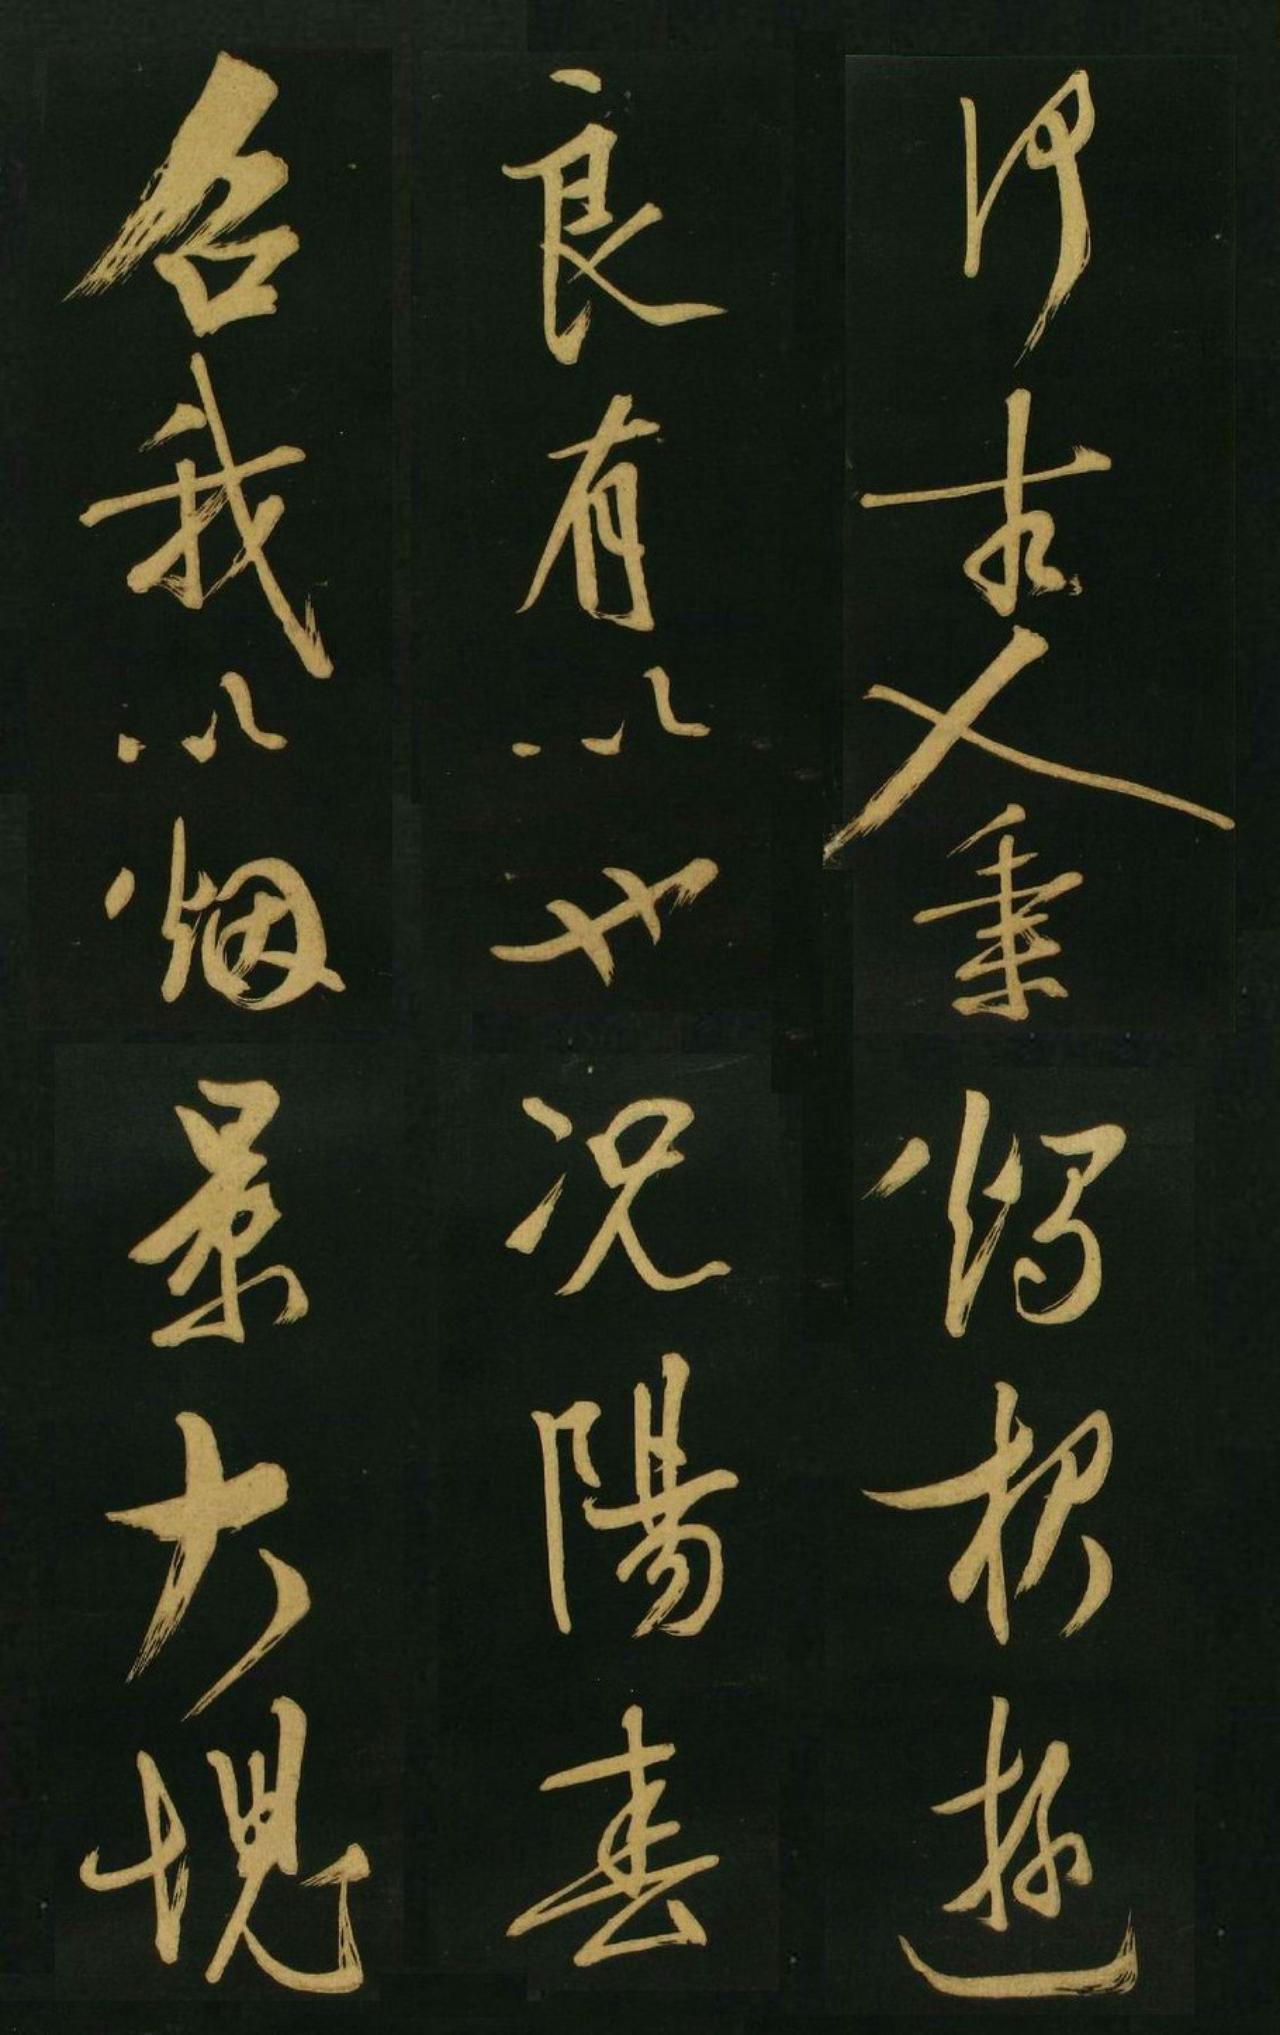 何古人秉燭夜遊
良有以也况陽春
召我以烟景大塊